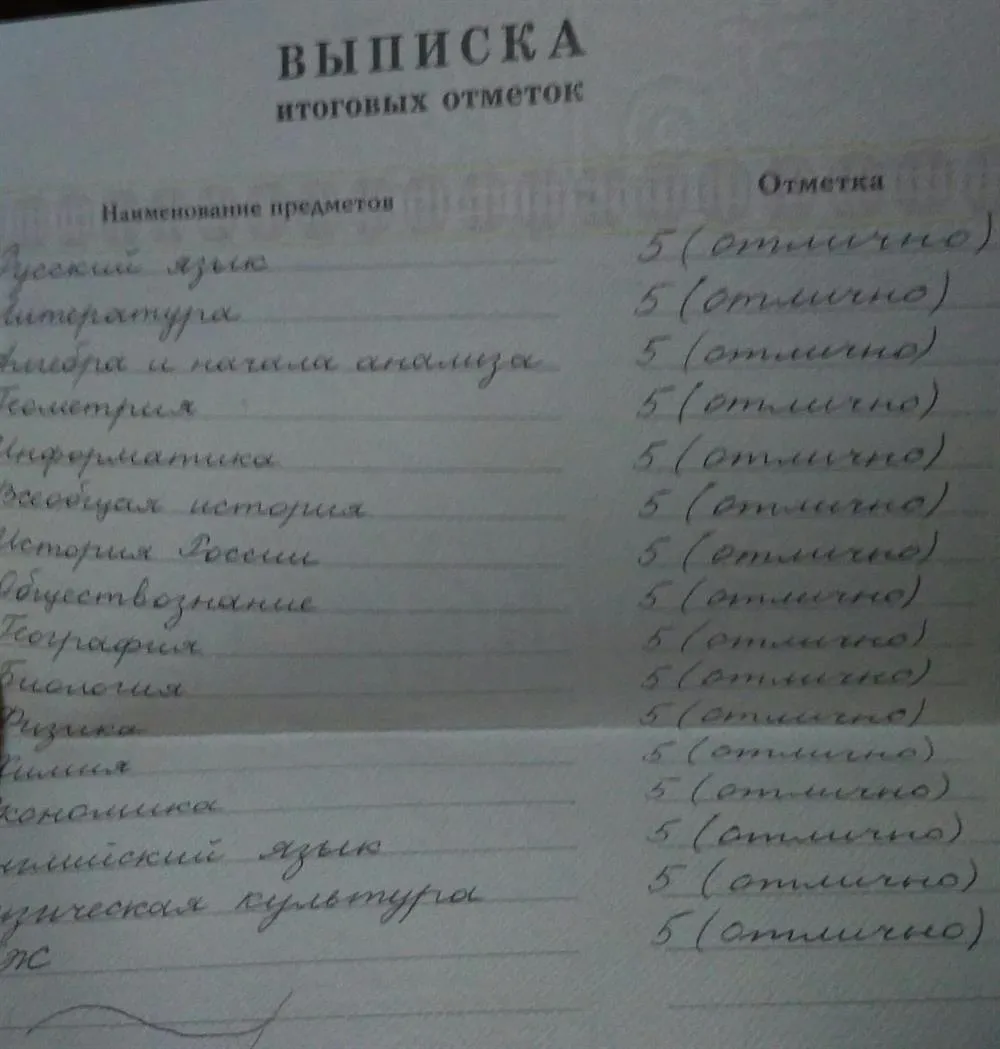 ВЫПИСКА
итоговых отметок
Наименование предметов Отметка
Русский язык 5 (отлично)
Литература 5 (отлично)
Алгебра и начала анализа 5 (отлично)
Геометрия 5 (отлично)
Информатика 5 (отлично)
Всеобщая история 5 (отлично)
История России 5 (отлично)
Обществознание 5 (отлично)
География 5 (отлично)
Биология 5 (отлично)
Физика 5 (отлично)
Химия 5 (отлично)
кономика 5 (отлично)
нглийский язык 5 (отлично)
изическая культура 5 (отлично)
Ж 5 (отлично)